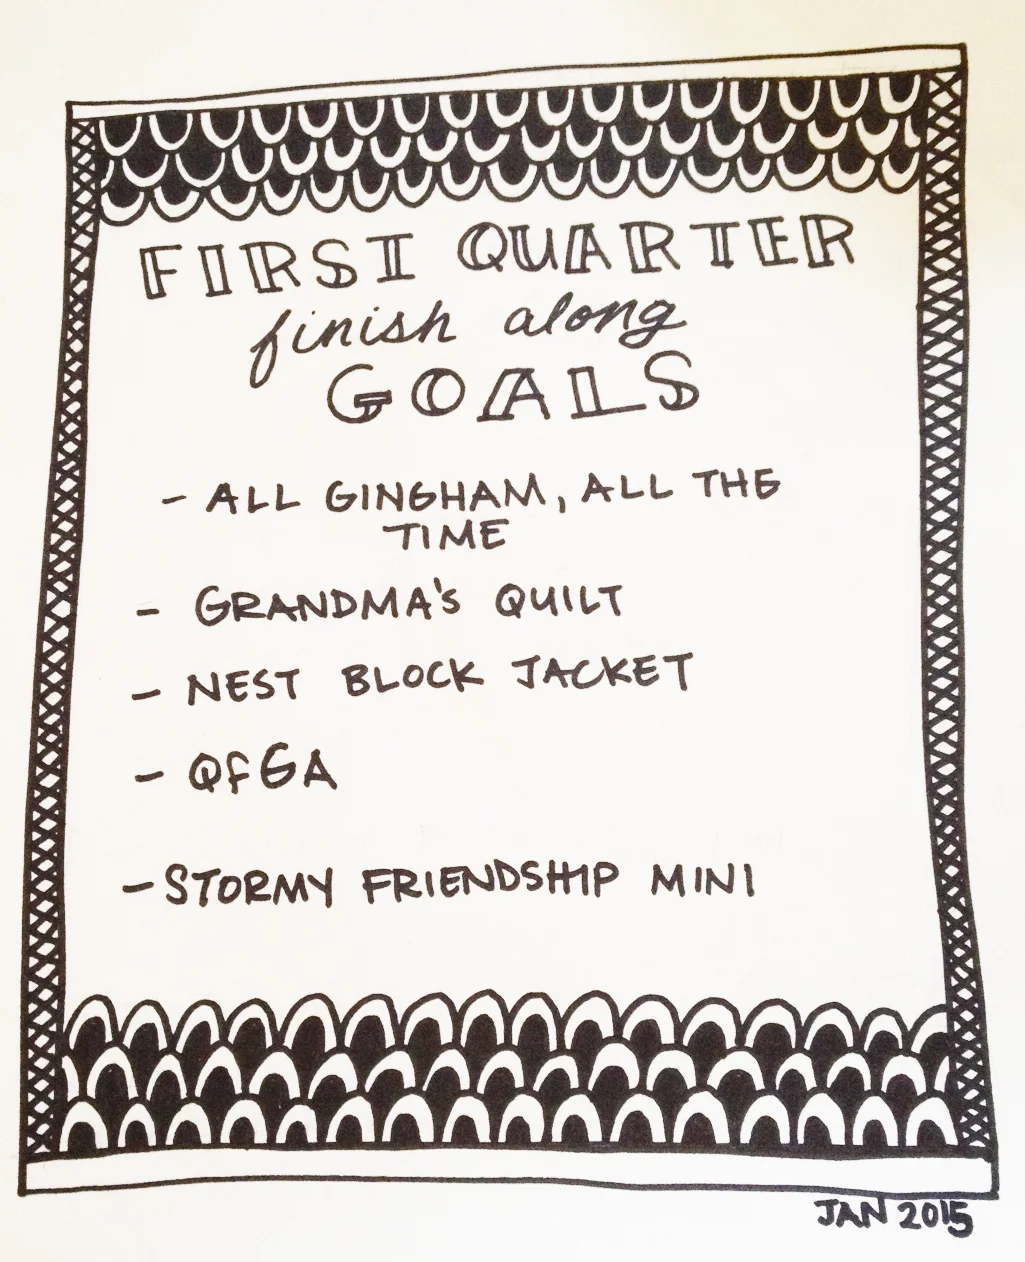 FIRST QUARTER
finish along
GOALS
- ALL GINGHAM, ALL THE
TIME
- GRANDMA'S QUILT
- NEST BLOCK JACKET
- QfGA
- STORMY FRIENDSHIP MINI
JAN 2015